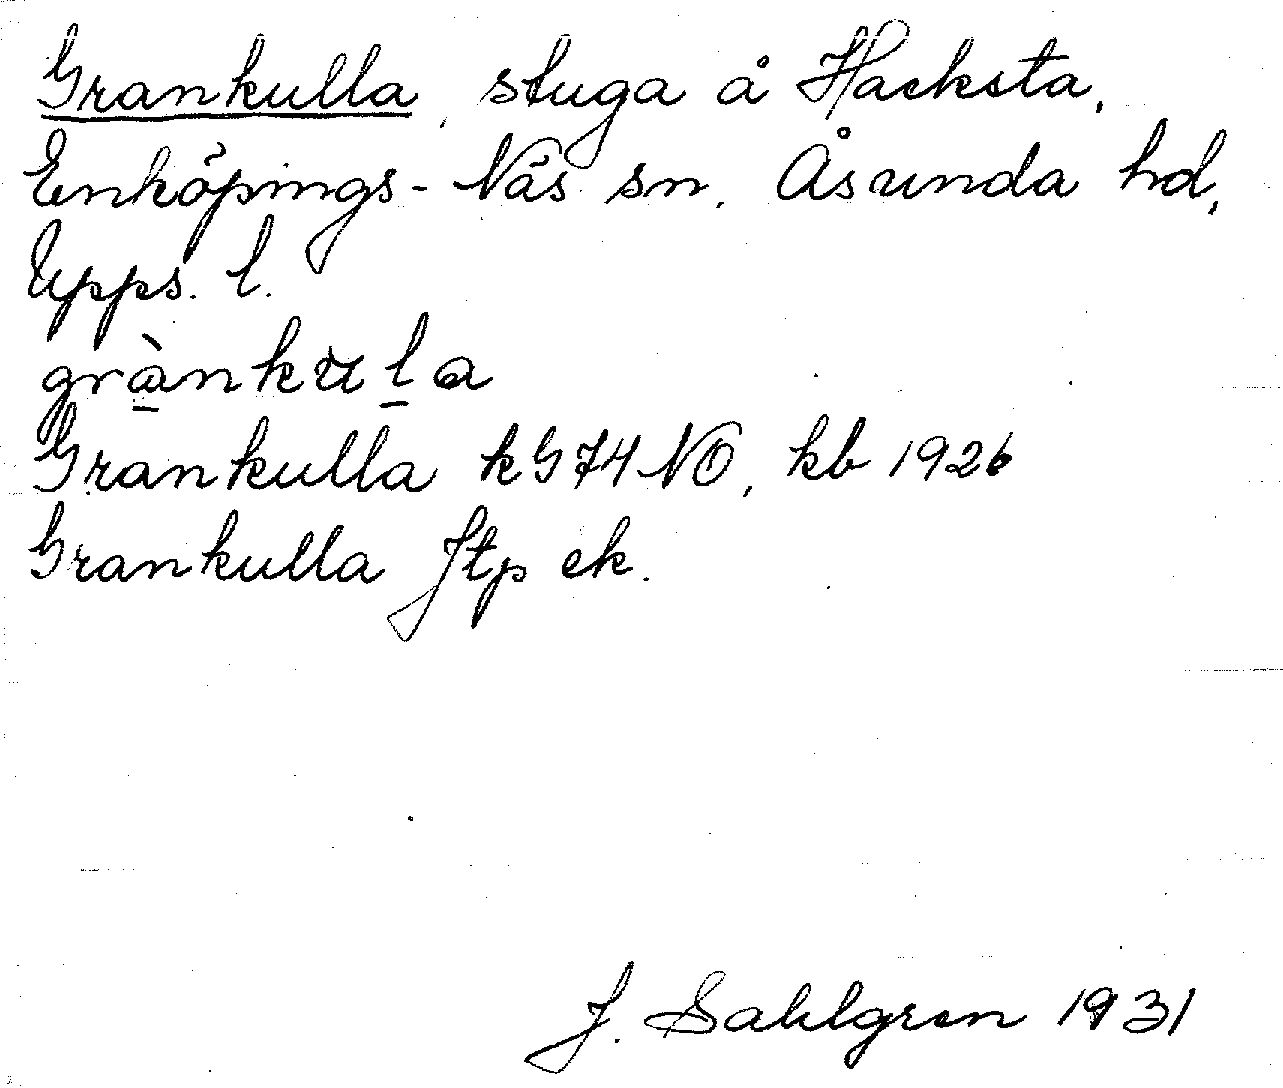 Grankulla, stuga å Hacksta,
Enköpings-Näs sn. Åsunda hd,
Upps. l.
grànkula
Grankulla k G 74 NO, kb 1926
Grankulla Jtp ek.
J. Sahlgren 1931